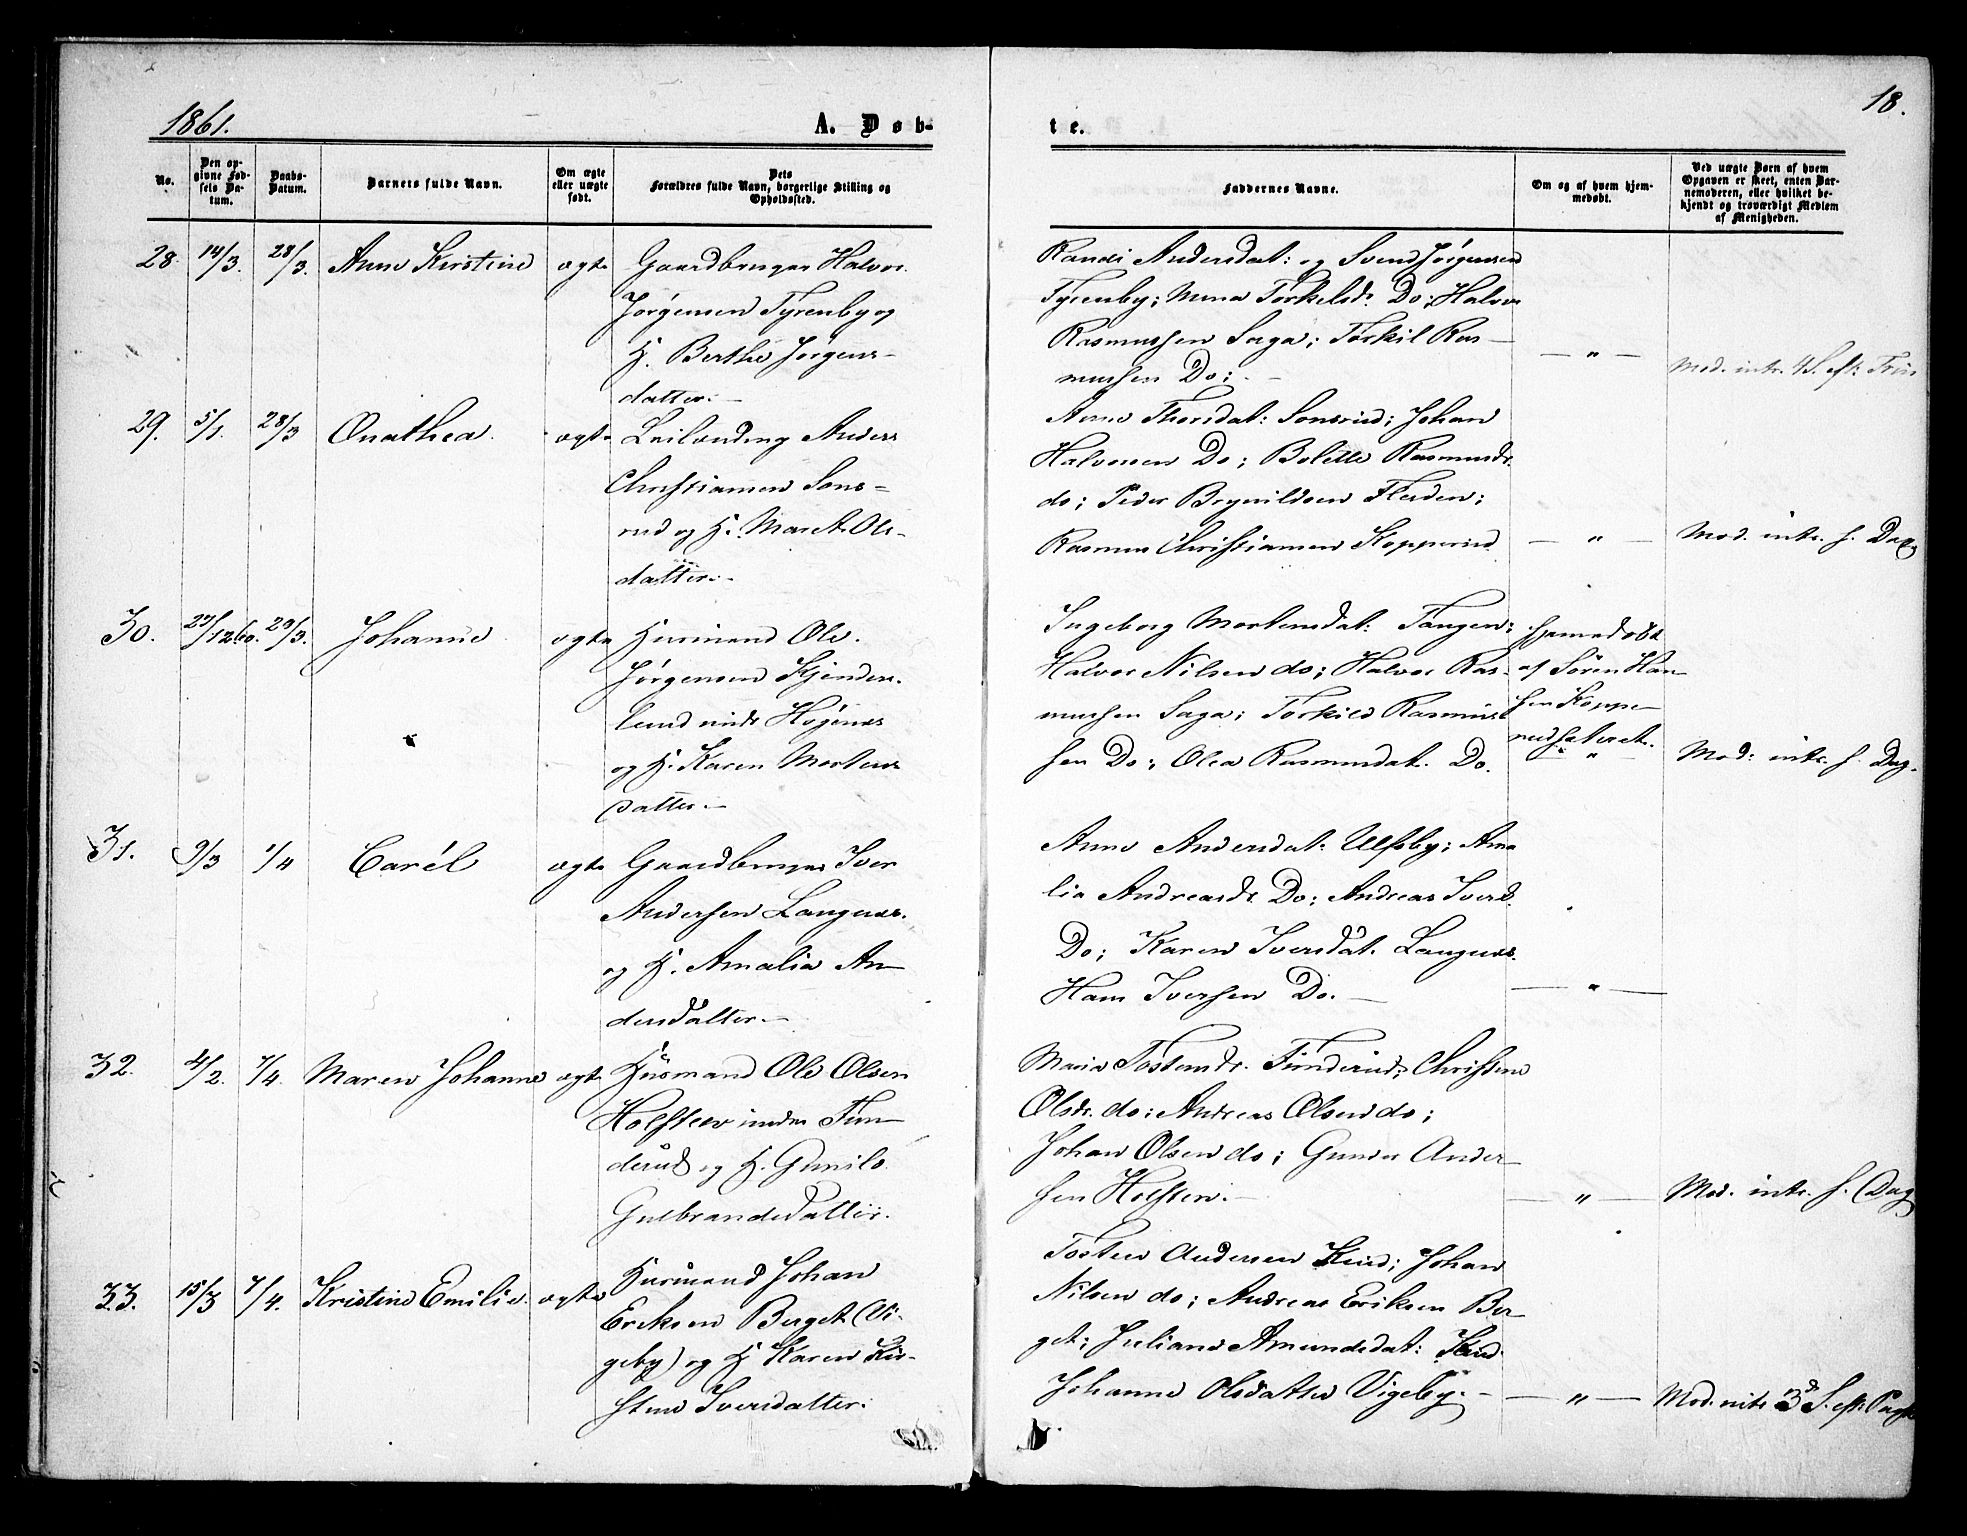 1861.
A. Døb-
te.
18.
No.
Den op-
givne Fød-
sels Da-
tum.
Daabs-
Datum.
Barnets fulde Navn.
Om ægte
eller uægte
født.
Dets
Forældres fulde Navn, borgerlige Stilling og
Opholdssted.
Faddernes Navne.
Om og af hvem hjem-
medøbt.
Ved uægte Børn af hvem
Opgaven er skeet, enten Bar-
nemoderen, eller hvilket be-
kjendt og troværdigt Medlem
af Menigheden.
28. 14/3. 28/3. Anne Kirstine ægte
Gaardbruger Halvor
Jørgensen Tyrenby og
H. Berthe Jørgens-
datter.-
Randi Andersdat: og Svend Jørgensen
Tyrenby; Mina Torkelsdr. Do; Halvor
Rasmussen Saga; Torkil Ras-
mussen Do;.-
— " —
Mod. intr. 4 S. eft. Trin
29. 5/1. 28/3 Onathea. ægte
Leilending Anders
Christiansen Sons-
rud og H. Maret Ols-
datter.-
Anne Thorsdat: Sonsrud; Johan
Halvorsen Do; Bolette Rasmusdr.
do; Peder Brynildsen Flesden;
Rasmus Christiansen Kopperud
— " —
Mod. intr. s. Dag
30. 29/12 60. 29/3. Johanne ægte
Husmand Ole
Jørgensen Kjendse-
lund under Høgenes
og H. Karen Mortens
datter.-
Ingeborg Mortensdat: Tangen;
Halvor Nilsen do; Halvor Ras-
mussen Saga; Torkild Rasmus-
sen Do; Olea Rasmusdat. Do.
hjemedøbt
af Søren Han-
sen Koppe-
rudsæteret.
— " —
Mod: intr. s. Dag.
31. 9/3 1/4 Carél ægte
Gaardbruger Iver
Andersen Langenes.
og H. Amalia An-
dersdatter.-
Anne Andersdat: Ulfsby; Ama
lia Andreasdr. Do; Andreas Iverd.
Do; Karen Iversdat. Langenes.
Hans Iversen Do.-
— " —
32. 4/2. 7/4. Maren Johanne ægte
Husmand Ole Olsen
Holsteen under Fun-
derud og H. Gunild
Gulbrandsdatter.
Maria Tostensdr. Funderud; Christine
Olsdr. do; Andreas Olsen do;
Johan Olsen do; Gunder Ander-
sen Holsten.-
— " —
Mod. intr. s. Dag
33. 15/3 7/4. Kristine Emilie. ægte
Husmand Johan
Eriksen Berget (Vi-
geby) og H Karen Kir-
stine Iversdatter.
Tosten Andersen Krud; Johan
Nilsen do; Andreas Eriksen Ber-
get; Juliane Amundsdat: Krud
Johanne Olsdatter Vigeby.-
— " —
Mod. intr. 3d S. eft. Paaske